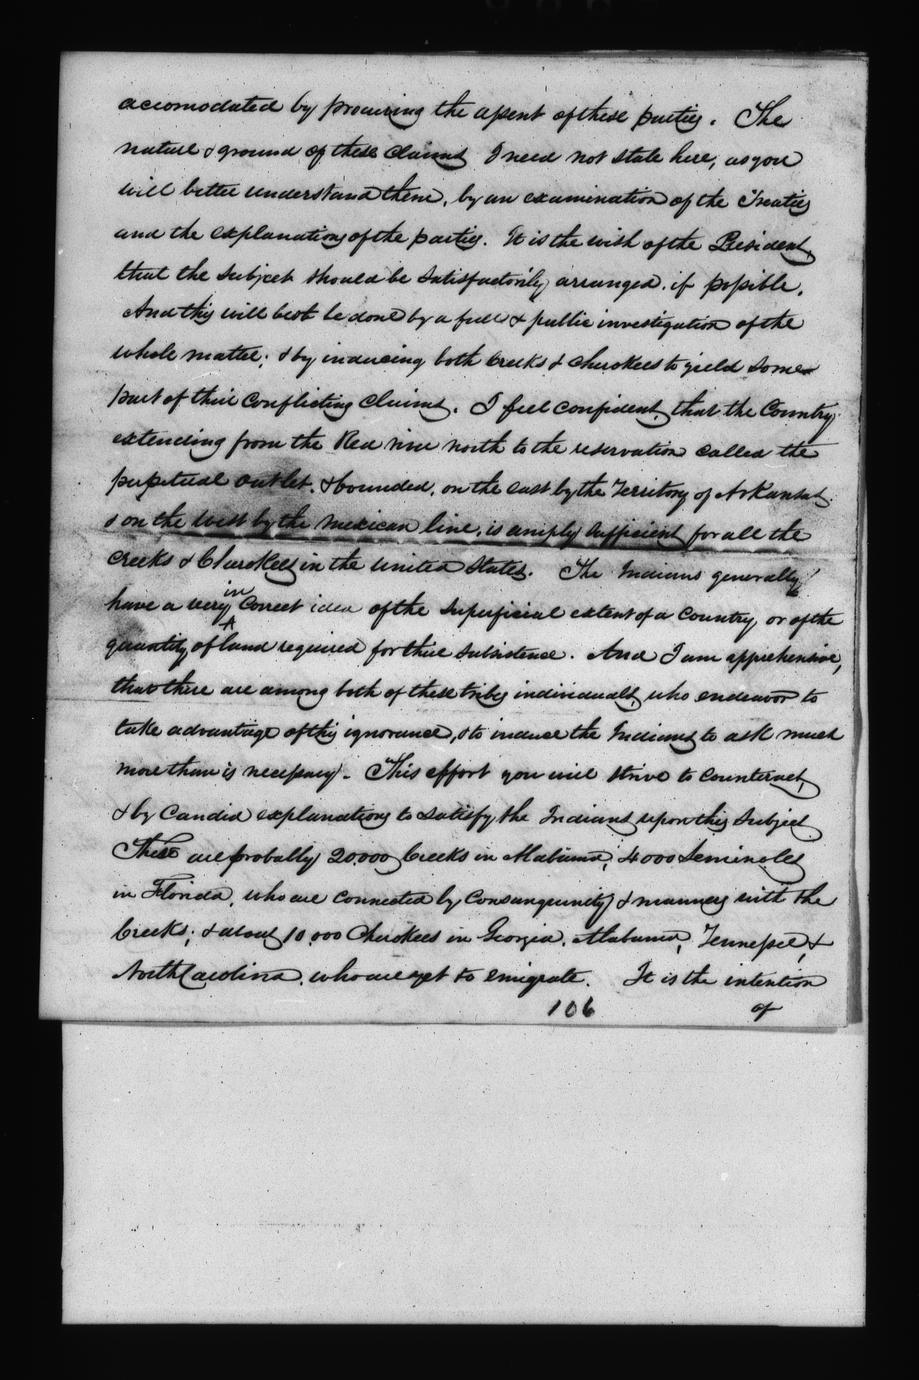 accomodated by procuring the assent of these parties. The
nature & ground of these claims I need not state here, as you
will better understand them, by an examination of the Treaties
and the explanations of the parties. It is the wish of the President,
that the subject should be satisfactorily arranged, if possible.
And this will best be done by a full & public investigation of the
whole matter; & by inducing both Creeks & Cherokees to yield some
part of their conflicting claims. I feel confident, that the Country
extending from the Red river north to the reservation called the
perpetual outlet, & bounded, on the east by the Territory of Arkansas
& on the west by the Mexican line, is amply sufficient for all the
Creeks & Cherokees in the United States. The Indians generally
have a very incorrect idea of the superficial extent of a country, or of the
quantity of land required for their subsistence. And I am apprehensive,
that there are among both of these tribes individuals, who endeavor to
take advantage of this ignorance, & to induce the Indians to ask much
more than is necessary. This effort you will strive to counteract,
& by candid explanations to satisfy the Indians upon this subject
There are probably 20,000 Creeks in Alabama, 4000 Seminoles
in Florida, who are connected by consanguinity & manners with the
Creeks; & about 10,000 Cherokees in Georgia, Alabama, Tennessee, &
North Carolina, who are yet to emigrate. It is the intention
106 of